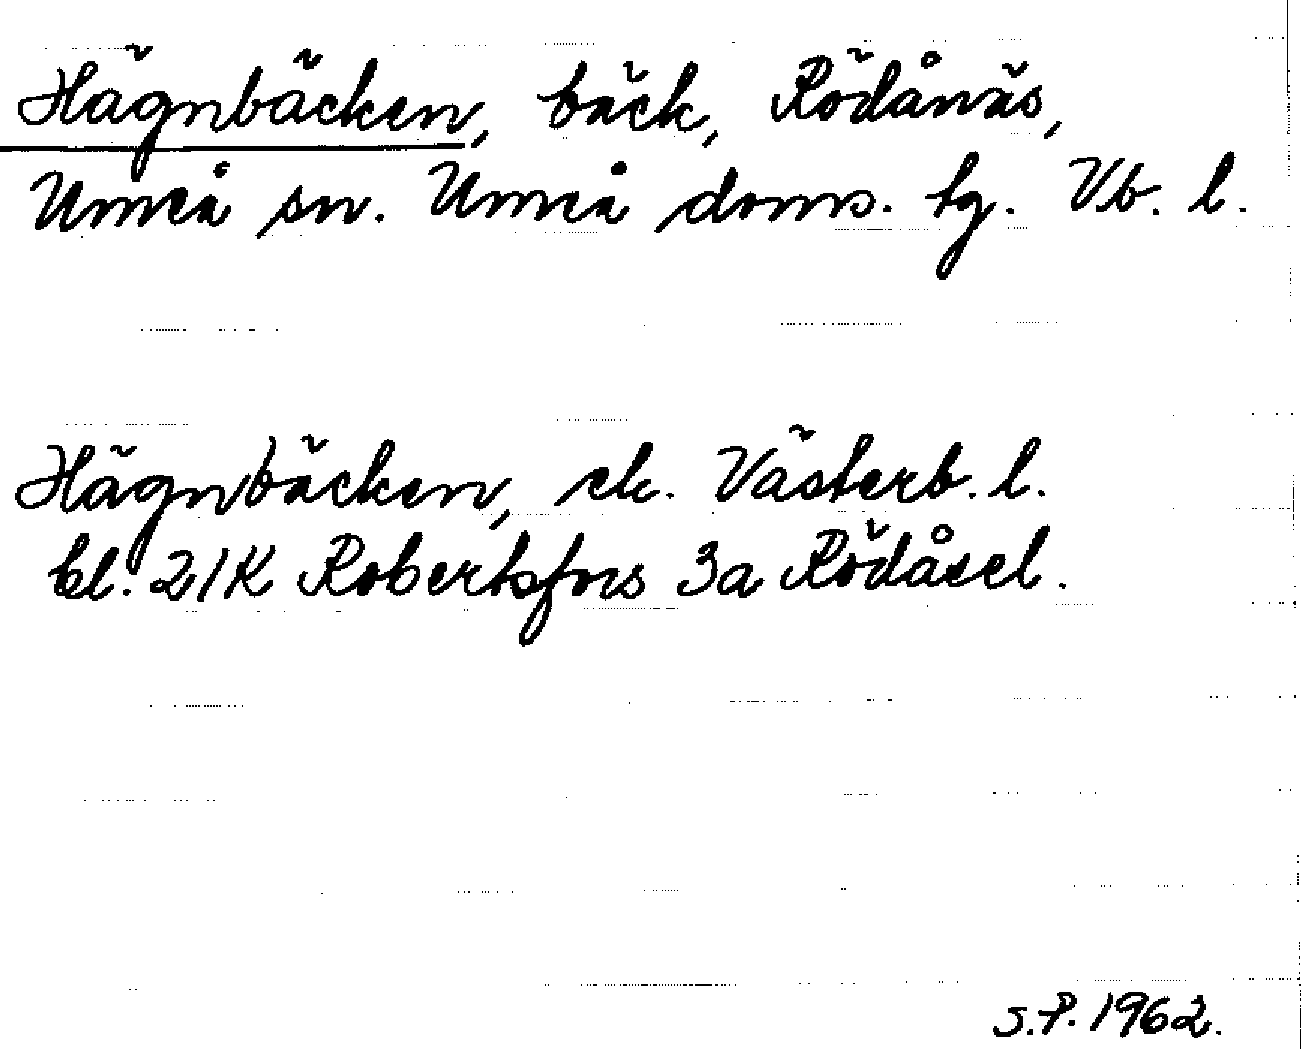 Hägnbäcken, bäck, Rödånäs,
Umeå sn. Umeå doms. tg. Vb. l.
Hägnbäcken, ek. Västerb. l.
bl. 21K Robertsfors 3a Rödåsel.
S.P. 1962.